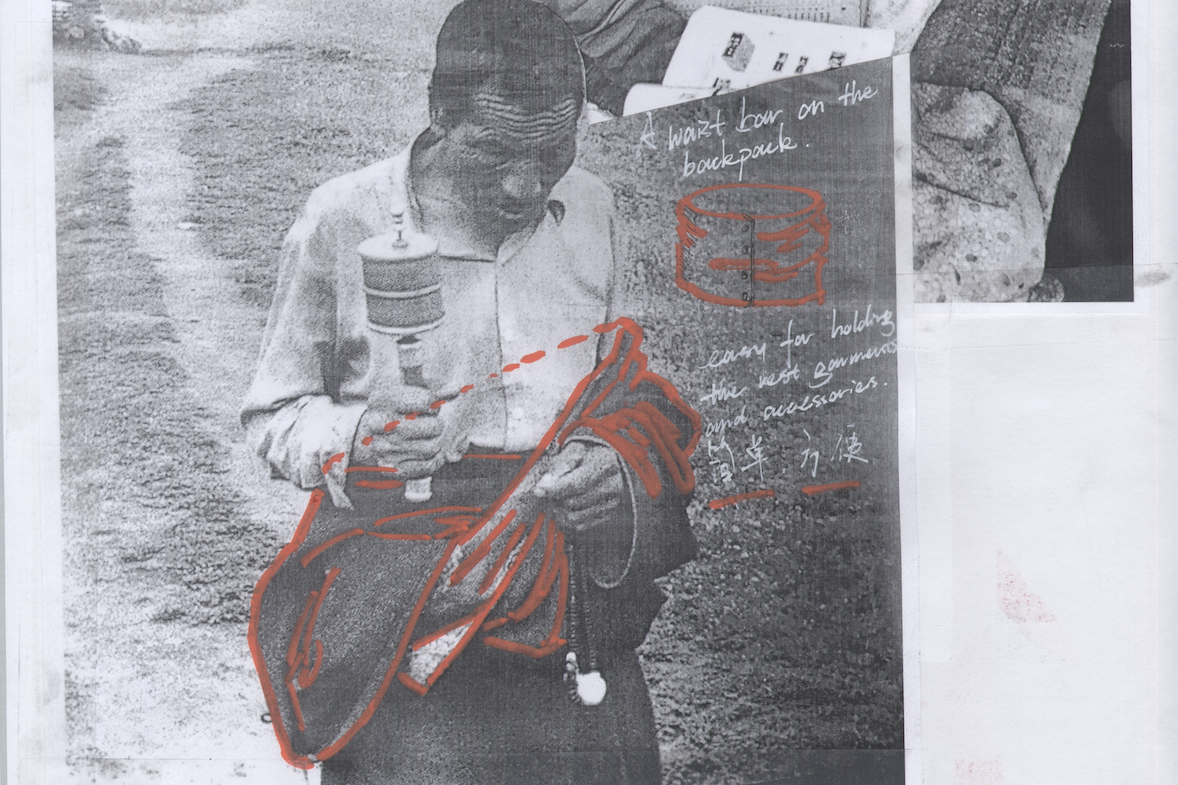 A waist bar on the
backpack.
easy for holding
the rest garments
and accessories.
简单 方便